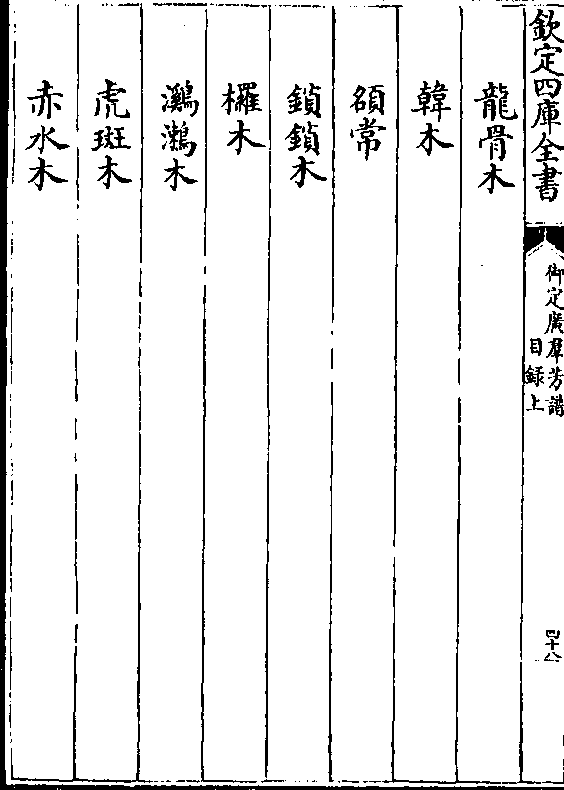 欽定四庫全書
御定廣羣芳譜
目録上
四十八
龍骨木
韓木
常
鎖鎖木
欏木
鸂木
虎斑木
赤水木